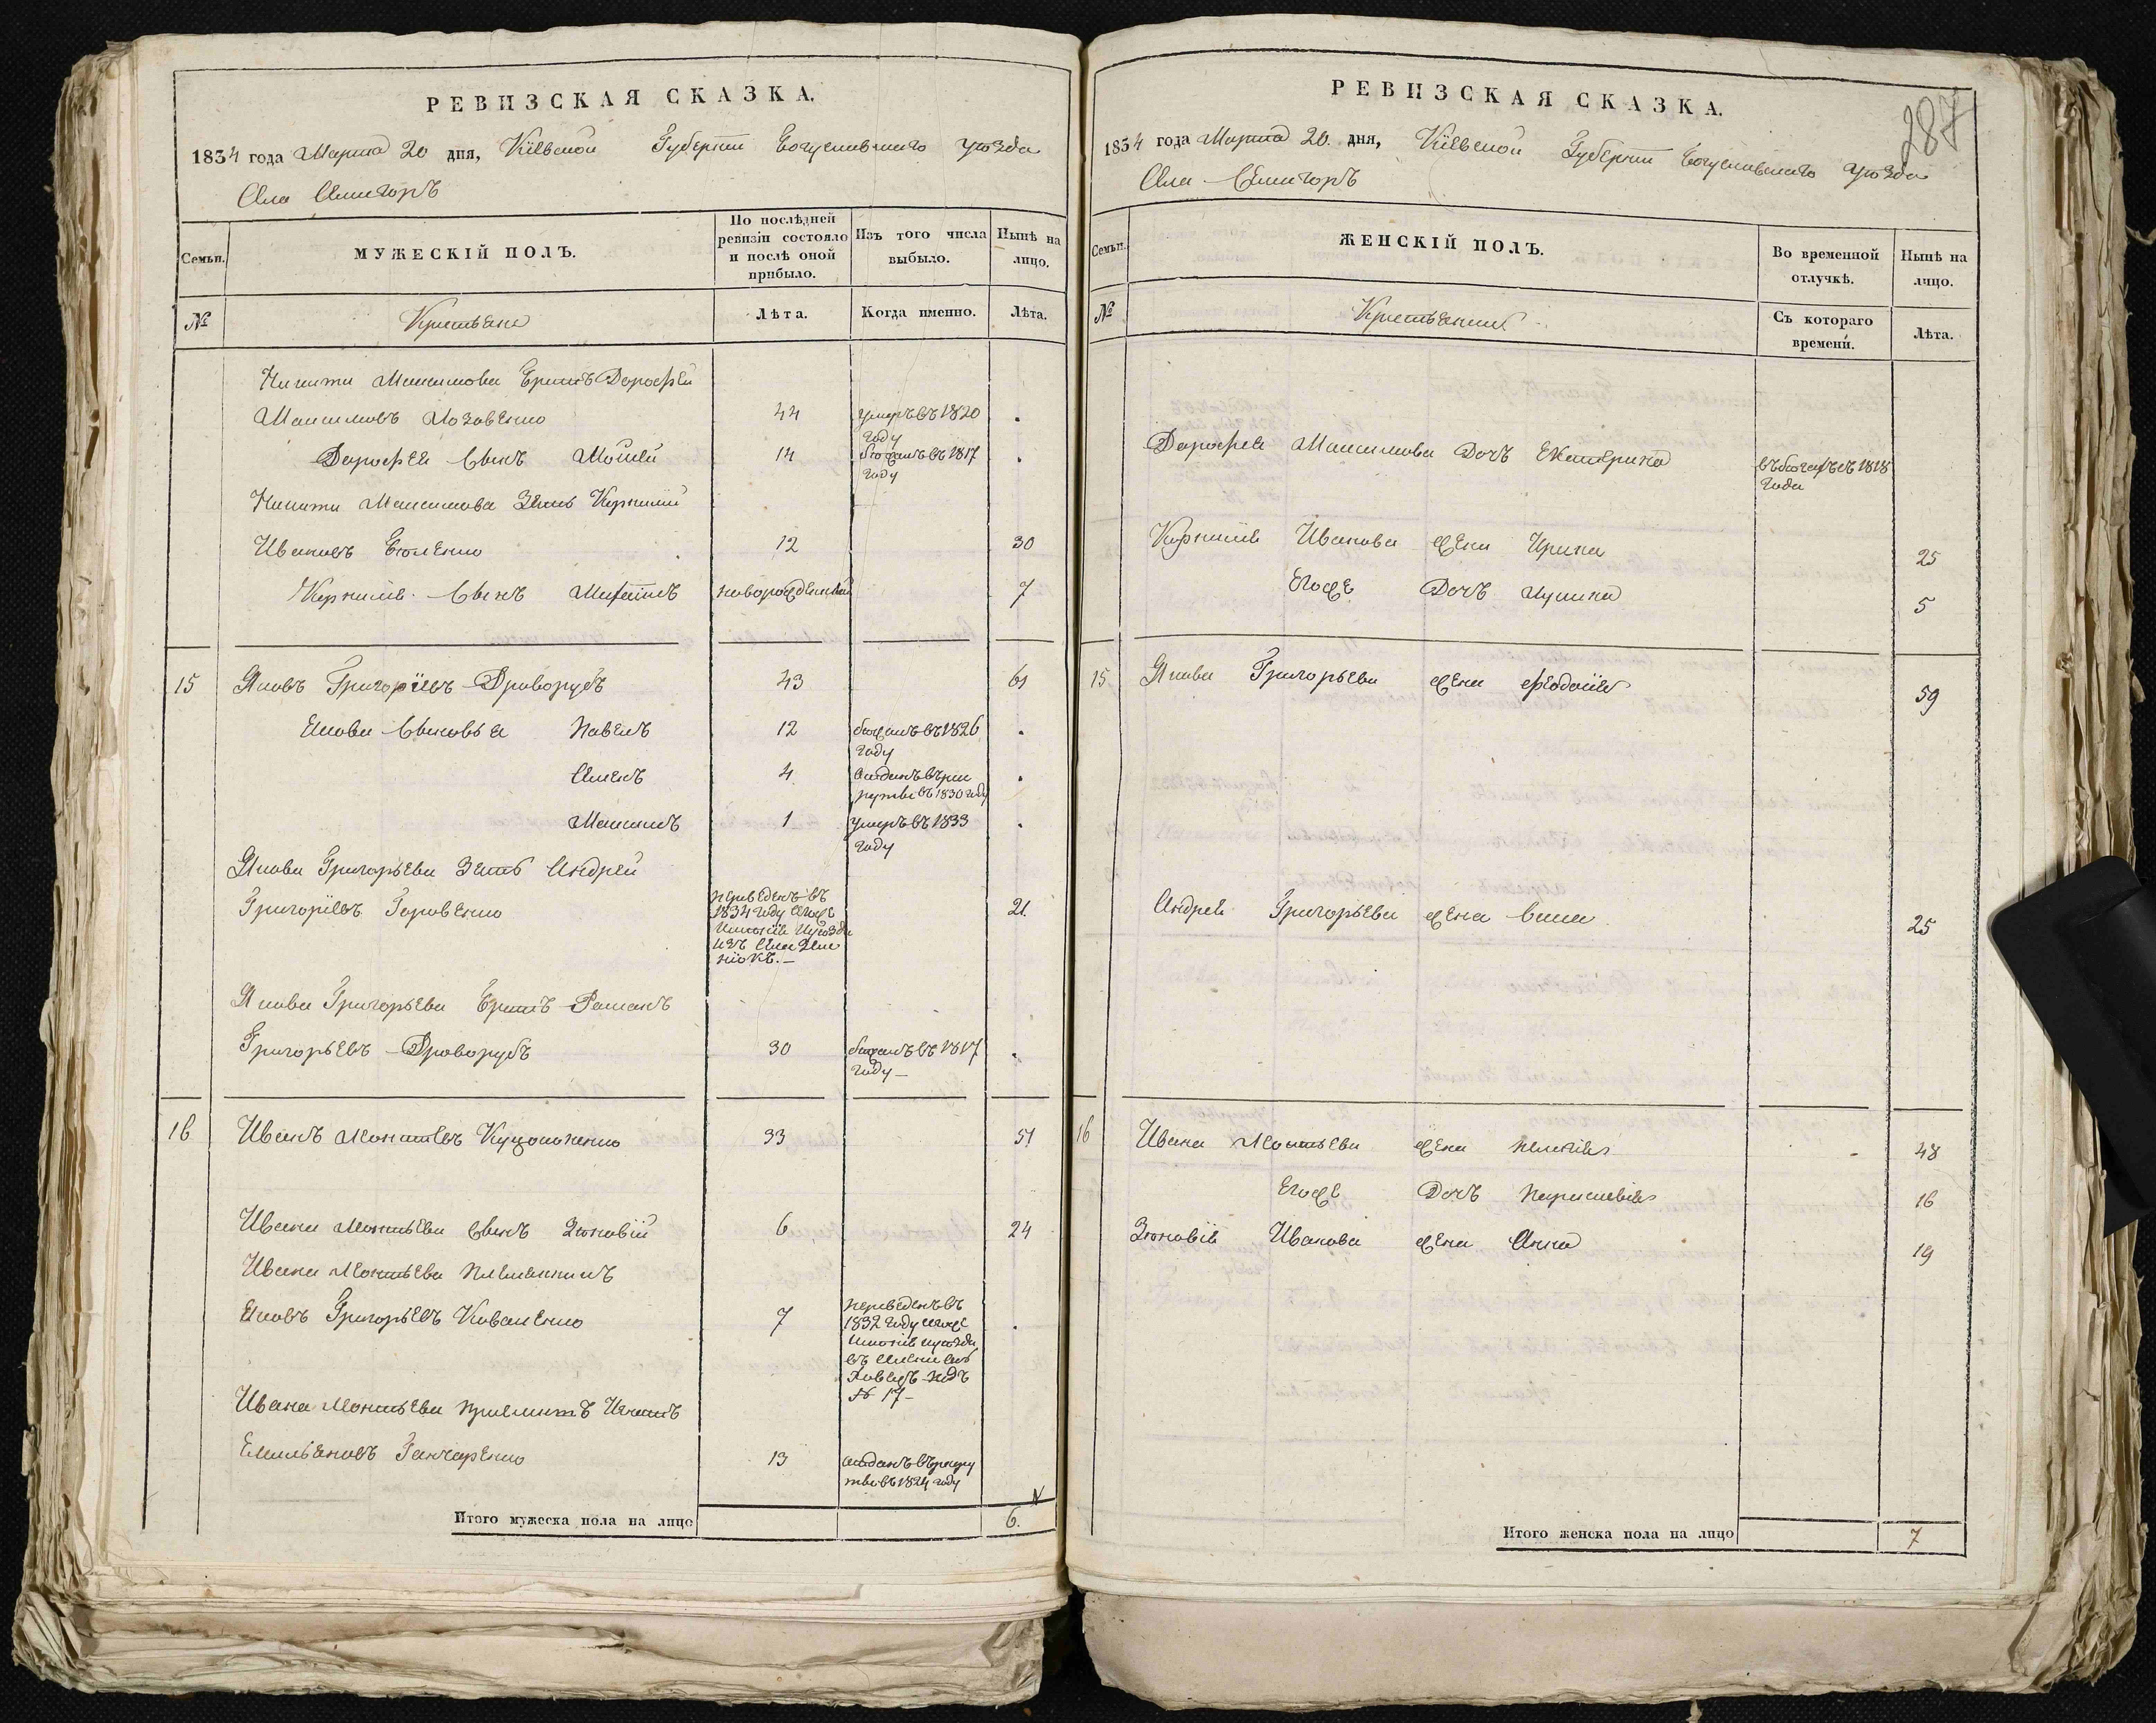 РЕВИЗСКАЯ СКАЗКА.
1834 года Марта 20 дня, Кіевской Губерніи Богуславского уѣзда
Села Селигоръ
Семьи.
МУЖЕСКІЙ ПОЛЪ.
По послѣдней ревизіи состояло и послѣ оной прибыло.
Изъ того числа выбыло.
Нынѣ на лицо.
№
Крестьяне
Лѣта.
Когда именно.
Лѣта.
Никиты Максимова братъ Дорофей
Максимовъ Мозовенко 44 умеръ въ 1820
году
Дорофея Сынъ Мойсей 14 бѣжалъ въ 1817
году
Никиты Максимова Зять Корнилій
Ивановъ 12 30
Корнилія Сынъ новорожденный 7
15 Яковъ Григоріевъ Дроворубъ 43 61
Якова Сыновья Павелъ 12 бѣжалъ въ 1826
году
Семенъ 4 отданъ въ рек
руты въ 1830 году
Максимъ 1 умеръ въ 1833
году
Якова Григорьева Зять Андрей
Григоріевъ 21
переведенъ въ
1834 году
имѣнія и уѣзда
изъ Села
Якова Григорьева братъ Романъ
Григорьевъ Дроворубъ 30 бѣжалъ въ 1817
году
16 Иванъ 33 51
Ивана Сынъ Зѣновій 6 24
Ивана племянникъ
Яковъ Григорьевъ Коваленко 7
переведенъ въ
1832 году того же
имѣнія и уѣзда
въ
подъ
№ 17
Ивана Игнатъ
Емельяновъ Ганчаренко 13 отданъ въ рекру
ты въ 1824 году
Итого мужеска пола на лицо 6.
РЕВИЗСКАЯ СКАЗКА.
287
1834 года Марта 20. дня, Кіевской Губерніи Богуславского уѣзда
Села Селигоръ
Семьи.
ЖЕНСКІЙ ПОЛЪ.
Во временной отлучкѣ.
Нынѣ на лицо.
№
Крестьянки
Съ котораго времени.
Лѣта.
Дорофея Максимова Дочь Екатерина въ бѣгахъ съ 1818
года
Корнилія Иванова жена Ирина 25
Егоже Дочь 5
15 Якова Григорьева жена Феодосія 59
Андрея Григорьева жена 25
16 Ивана жена Пелагія 48
Егоже Дочь Параскевія 16
Зѣновія Иванова жена Анна 19
Итого женска пола на лицо 7